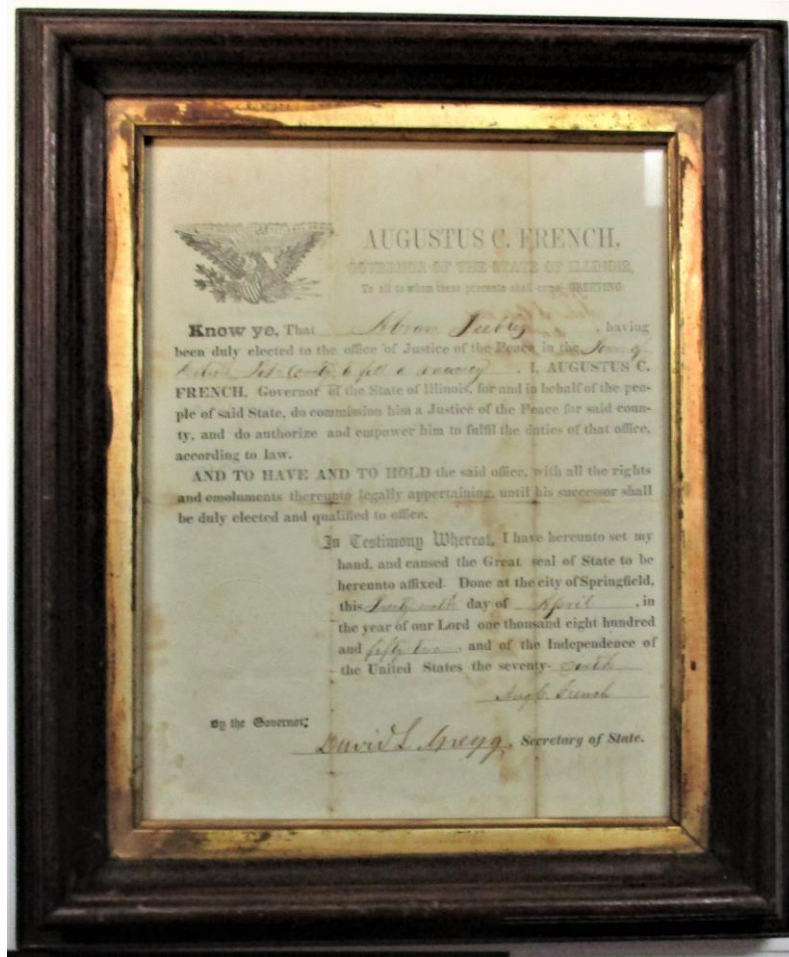 AUGUSTUS C. FRENCH,
GOVERNOR OF THE STATE OF ILLINOIS,
To all to whom these presents shall come, GREETING:
Know ye, That Abram , having
been duly elected to the office of Justice of the Peace in the Town of
County to fill a vacancy . I, AUGUSTUS C.
FRENCH, Governor of the State of Illinois, for and in behalf of the peo-
ple of said State, do commission him a Justice of the Peace for said coun-
ty, and do authorize and empower him to fulfil the duties of that office,
according to law.
AND TO HAVE AND TO HOLD the said office, with all the rights
and emoluments thereunto legally appertaining, until his successor shall
be duly elected and qualified to office.
In Testimony Whereof, I have hereunto set my
hand, and caused the Great seal of State to be
hereunto affixed. Done at the city of Springfield,
this day of April , in
the year of our Lord one thousand eight hundred
and fifty two and of the Independence of
the United States the seventy- sixth
Aug C. French
By the Governor:
David L. Gregg, Secretary of State.